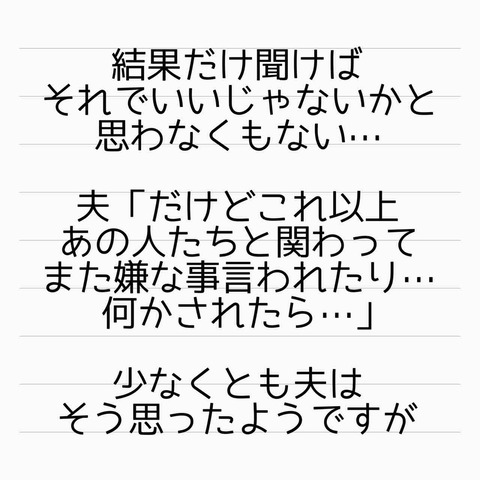 結果だけ聞けば
それでいいじゃないかと
思わなくもない…
夫「だけどこれ以上
あの人たちと関わって
また嫌な事言われたり…
何かされたら…」
少なくとも夫は
そう思ったようですが